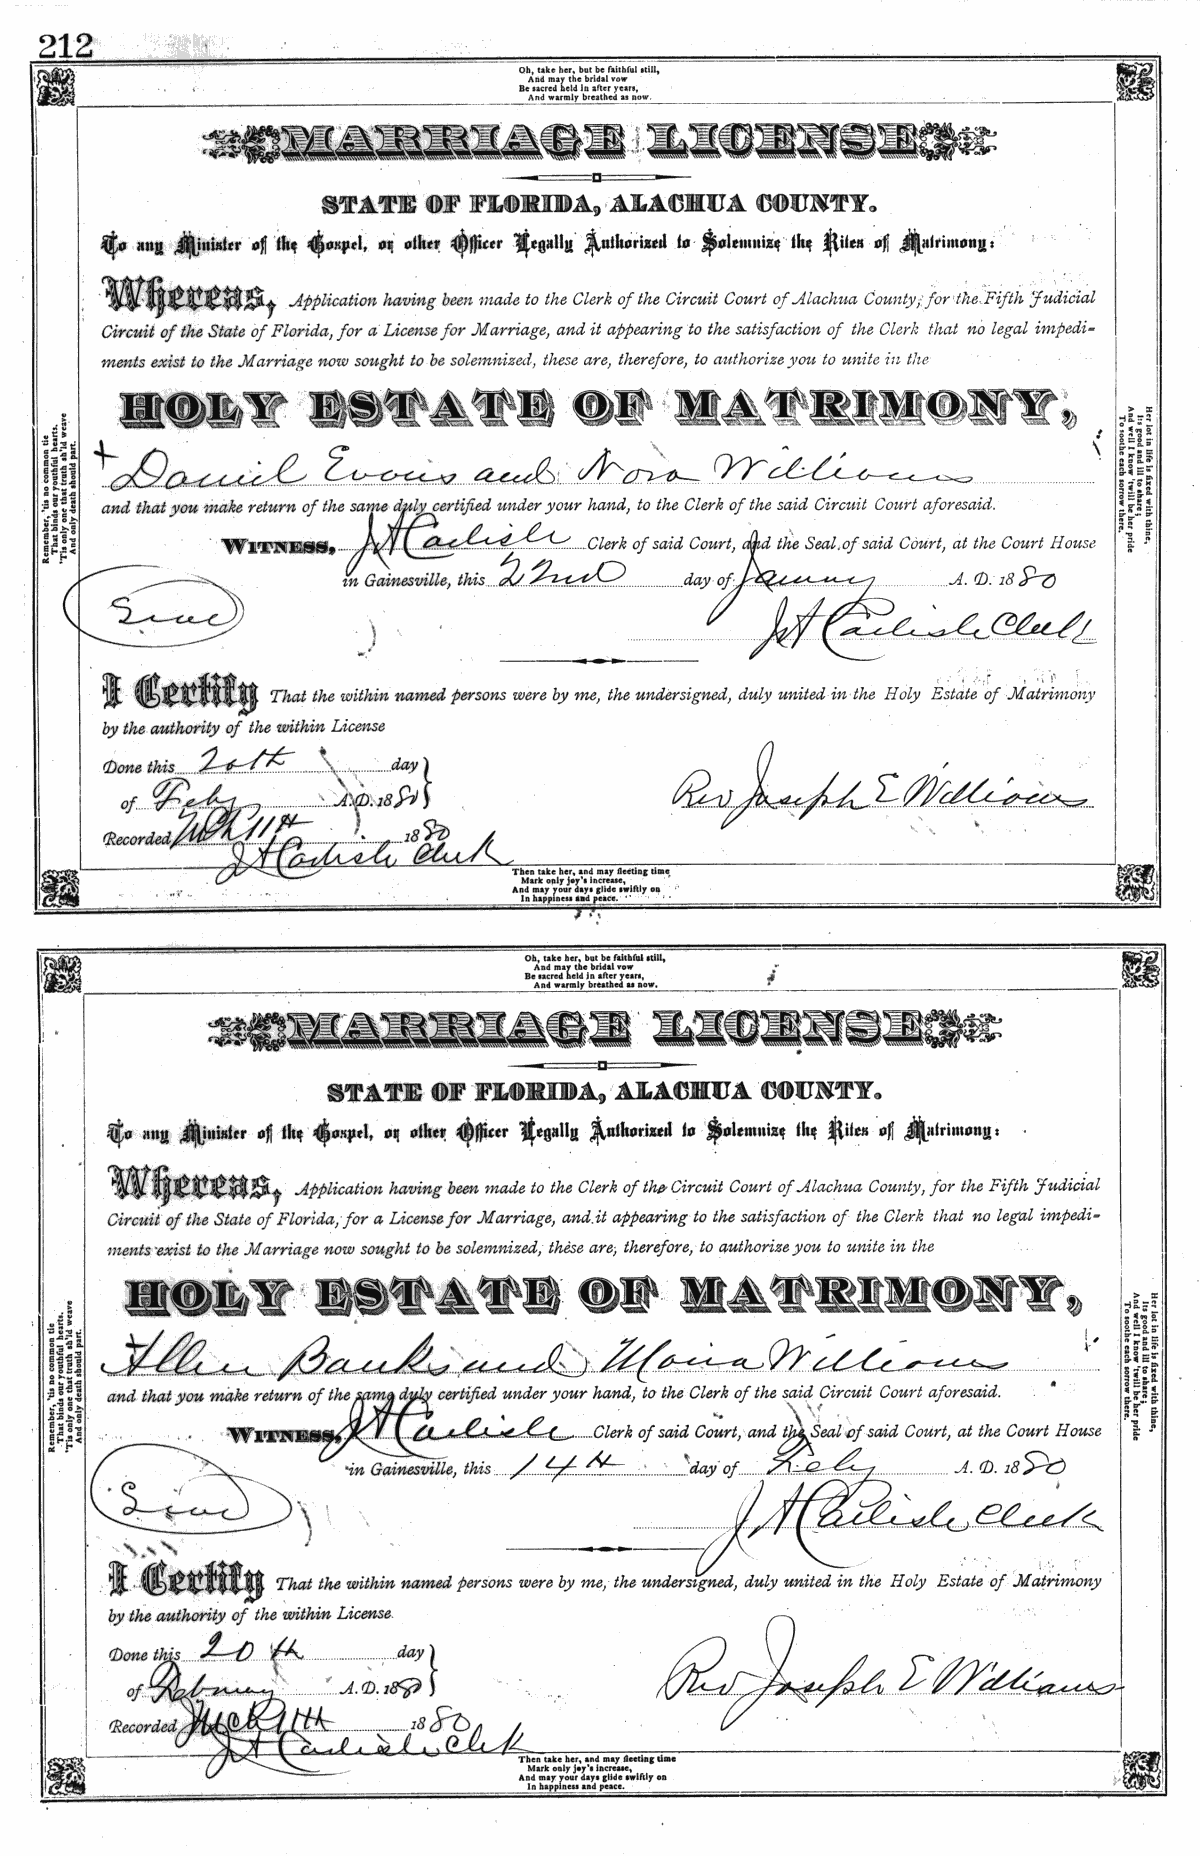 212
Oh, take her, but be faithful still,
And may the bridal vow
Be sacred held in after years,
And warmly breathed as now.
MARRIAGE LICENSE
STATE OF FLORIDA, ALACHUA COUNTY.
To any Minister of the Gospel, or other Officer Legally Authorized to Solemnize the Rites of Matrimony:
Whereas, Application having been made to the Clerk of the Circuit Court of Alachua County, for the Fifth Judicial
Circuit of the State of Florida, for a License for Marriage, and it appearing to the satisfaction of the Clerk that no legal impedi-
ments exist to the Marriage now sought to be solemnized, these are, therefore, to authorize you to unite in the
HOLY ESTATE OF MATRIMONY,
Daniel Evans and Nora Williams
and that you make return of the same duly certified under your hand, to the Clerk of the said Circuit Court aforesaid.
WITNESS, J A Carlisle Clerk of said Court, and the Seal of said Court, at the Court House
in Gainesville, this 22nd day of January A. D. 1880
Seal
J A Carlisle Clerk
I Certify That the within named persons were by me, the undersigned, duly united in the Holy Estate of Matrimony
by the authority of the within License
Done this 20th day
of Feby A. D. 1880
Rev Joseph E Williams
Recorded Mch 11th 1880
J A Carlisle Clerk
Then take her, and may fleeting time
Mark only joy's increase,
And may your days glide swiftly on
In happiness and peace.
Remember, 'tis no common tie
That binds our youthful hearts,
'Tis only one that truth sh'ld weave
And only death should part.
Her lot in life is fixed with thine,
Its good and ill to share;
And well I know 'twill be her pride
To soothe each sorrow there.
Oh, take her, but be faithful still,
And may the bridal vow
Be sacred held in after years,
And warmly breathed as now.
MARRIAGE LICENSE
STATE OF FLORIDA, ALACHUA COUNTY.
To any Minister of the Gospel, or other Officer Legally Authorized to Solemnize the Rites of Matrimony:
Whereas, Application having been made to the Clerk of the Circuit Court of Alachua County, for the Fifth Judicial
Circuit of the State of Florida, for a License for Marriage, and it appearing to the satisfaction of the Clerk that no legal impedi-
ments exist to the Marriage now sought to be solemnized, these are, therefore, to authorize you to unite in the
HOLY ESTATE OF MATRIMONY,
Allen Banks and Williams
and that you make return of the same duly certified under your hand, to the Clerk of the said Circuit Court aforesaid.
WITNESS, J A Carlisle Clerk of said Court, and the Seal of said Court, at the Court House
in Gainesville, this 14th day of Feby A. D. 1880
Seal
J A Carlisle Clerk
I Certify That the within named persons were by me, the undersigned, duly united in the Holy Estate of Matrimony
by the authority of the within License.
Done this 20th day
of February A. D. 1880
Rev Joseph E Williams
Recorded Mch 11th 1880
J A Carlisle Clerk
Then take her, and may fleeting time
Mark only joy's increase,
And may your days glide swiftly on
In happiness and peace.
Remember, 'tis no common tie
That binds our youthful hearts,
'Tis only one that truth sh'ld weave
And only death should part.
Her lot in life is fixed with thine,
Its good and ill to share;
And well I know 'twill be her pride
To soothe each sorrow there.